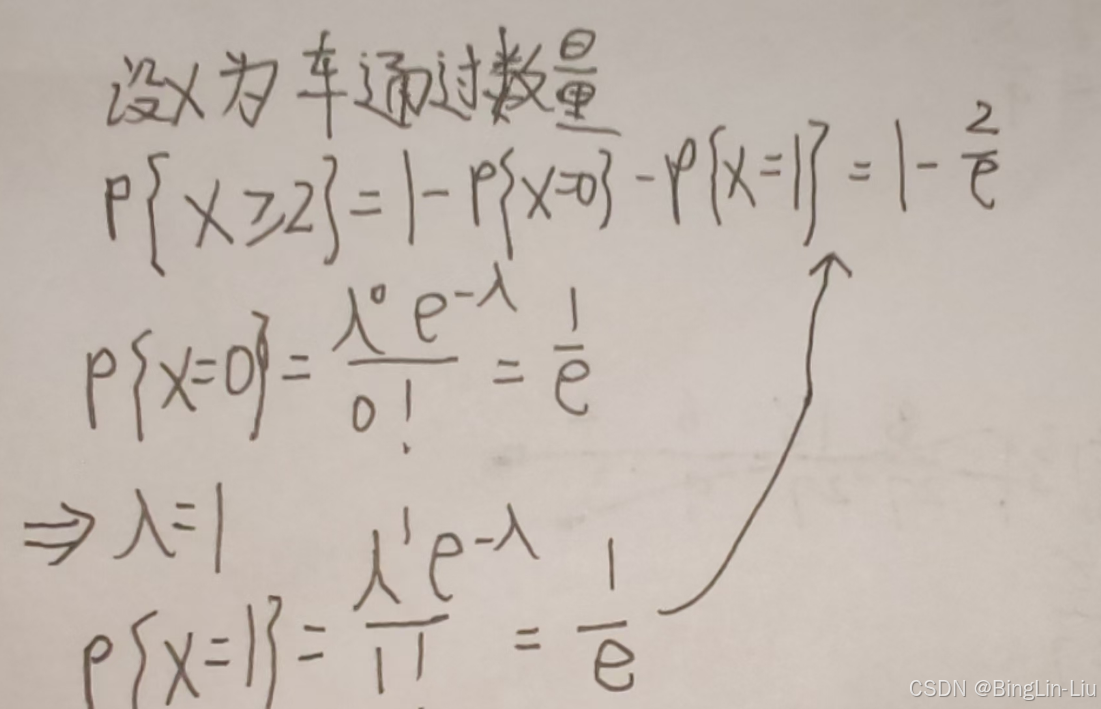 设X为车通过数量
P{X≥2}=1-P{X=0}-P{X=1}=1-2/e
P{X=0}=λ⁰e^{-λ}/0!=1/e
⇒λ=1
P{X=1}=λ¹e^{-λ}/1!=1/e
CSDN @BingLin-Liu